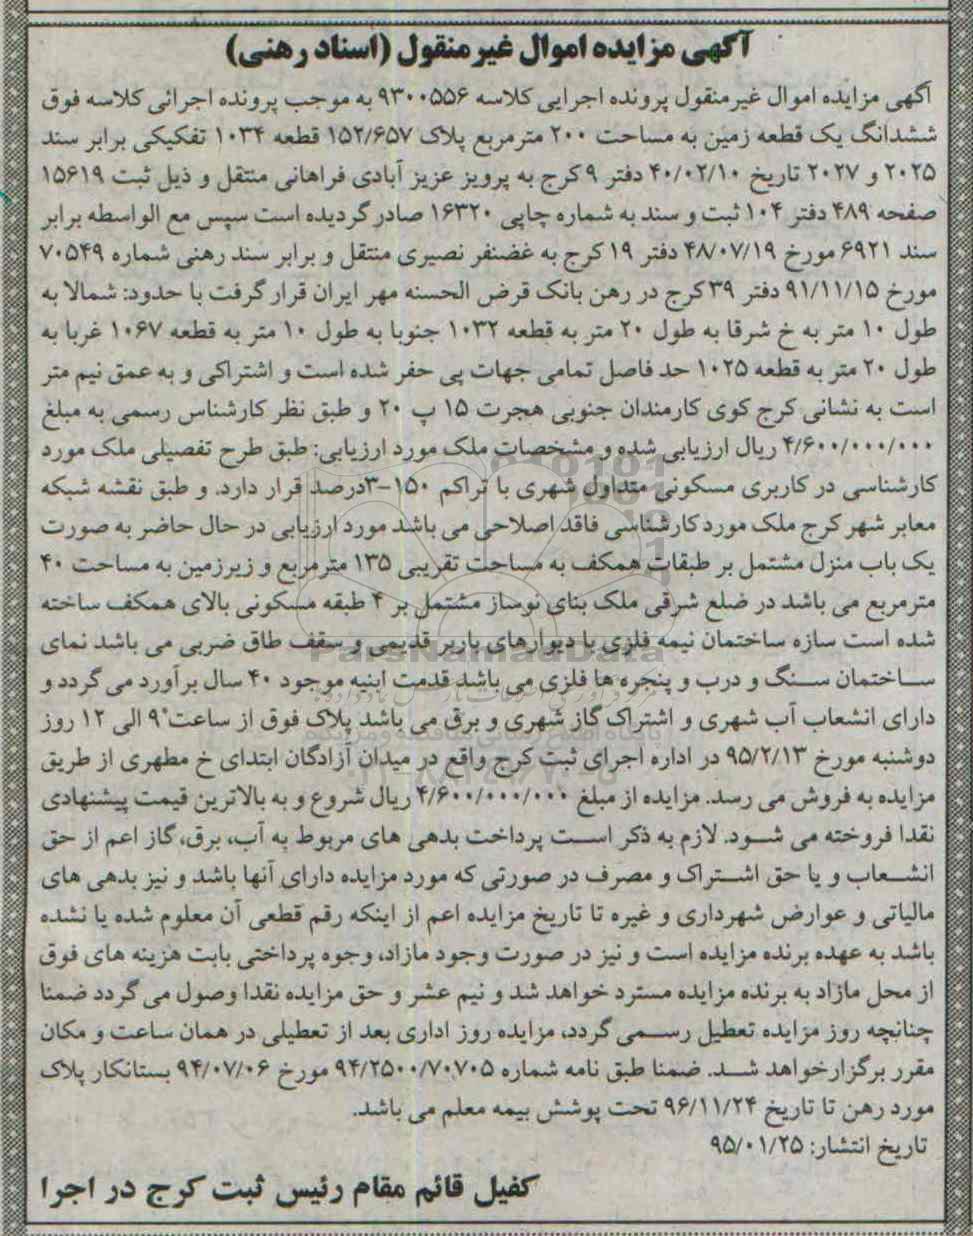 آگهی مزایده اموال غیرمنقول (اسناد رهنی)
آگهی مزایده اموال غیرمنقول پرونده اجرایی کلاسه ۹۳۰۰۵۵۶ به موجب پرونده اجرائی کلاسه فوق
ششدانگ یک قطعه زمین به مساحت ۲۰۰ مترمربع پلاک ۱۵۲/۶۵۷ قطعه ۱۰۳۴ تفکیکی برابر سند
۲۰۲۵ و ۲۰۲۷ تاریخ ۴۰/۰۲/۱۰ دفتر ۹ کرج به پرویز عزیز آبادی فراهانی منتقل و ذیل ثبت ۱۵۶۱۹
صفحه ۴۸۹ دفتر ۱۰۴ ثبت و سند به شماره چاپی ۱۶۳۲۰ صادر گردیده است سپس مع الواسطه برابر
سند ۶۹۲۱ مورخ ۴۸/۰۷/۱۹ دفتر ۱۹ کرج به غضنفر نصیری منتقل و برابر سند رهنی شماره ۷۰۵۴۹
مورخ ۹۱/۱۱/۱۵ دفتر ۳۹ کرج در رهن بانک قرض الحسنه مهر ایران قرار گرفت با حدود: شمالا به
طول ۱۰ متر به خ شرقا به طول ۲۰ متر به قطعه ۱۰۳۲ جنوبا به طول ۱۰ متر به قطعه ۱۰۶۷ غربا به
طول ۲۰ متر به قطعه ۱۰۲۵ حد فاصل تمامی جهات پی حفر شده است و اشتراکی و به عمق نیم متر
است به نشانی کرج کوی کارمندان جنوبی هجرت ۱۵ پ ۲۰ و طبق نظر کارشناس رسمی به مبلغ
۴/۶۰۰/۰۰۰/۰۰۰ ریال ارزیابی شده و مشخصات ملک مورد ارزیابی: طبق طرح تفصیلی ملک مورد
کارشناسی در کاربری مسکونی متداول شهری با تراکم ۱۵۰-۳درصد قرار دارد. و طبق نقشه شبکه
معابر شهر کرج ملک مورد کارشناسی فاقد اصلاحی می باشد مورد ارزیابی در حال حاضر به صورت
یک باب منزل مشتمل بر طبقات همکف به مساحت تقریبی ۱۳۵ مترمربع و زیرزمین به مساحت ۴۰
مترمربع می باشد در ضلع شرقی ملک بنای نوساز مشتمل بر ۴ طبقه مسکونی بالای همکف ساخته
شده است سازه ساختمان نیمه فلزی با دیوارهای باربر قدیمی و سقف طاق ضربی می باشد نمای
ساختمان سنگ و درب و پنجره ها فلزی می باشد قدمت ابنیه موجود ۴۰ سال برآورد می گردد و
دارای انشعاب آب شهری و اشتراک گاز شهری و برق می باشد پلاک فوق از ساعت ۹ الی ۱۲ روز
دوشنبه مورخ ۹۵/۲/۱۳ در اداره اجرای ثبت کرج واقع در میدان آزادگان ابتدای خ مطهری از طریق
مزایده به فروش می رسد. مزایده از مبلغ ۴/۶۰۰/۰۰۰/۰۰۰ ریال شروع و به بالاترین قیمت پیشنهادی
نقدا فروخته می شود. لازم به ذکر است پرداخت بدهی های مربوط به آب، برق، گاز اعم از حق
انشعاب و یا حق اشتراک و مصرف در صورتی که مورد مزایده دارای آنها باشد و نیز بدهی های
مالیاتی و عوارض شهرداری و غیره تا تاریخ مزایده اعم از اینکه رقم قطعی آن معلوم شده یا نشده
باشد به عهده برنده مزایده است و نیز در صورت وجود مازاد، وجوه پرداختی بابت هزینه های فوق
از محل مازاد به برنده مزایده مسترد خواهد شد و نیم عشر و حق مزایده نقدا وصول می گردد ضمنا
چنانچه روز مزایده تعطیل رسمی گردد، مزایده روز اداری بعد از تعطیلی در همان ساعت و مکان
مقرر برگزار خواهد شد. ضمنا طبق نامه شماره ۹۴/۲۵۰۰/۷۰۷۰۵ مورخ ۹۴/۰۷/۰۶ بستانکار پلاک
مورد رهن تا تاریخ ۹۶/۱۱/۲۴ تحت پوشش بیمه معلم می باشد.
تاریخ انتشار: ۹۵/۰۱/۲۵
کفیل قائم مقام رئیس ثبت کرج در اجرا
ParsNamadData